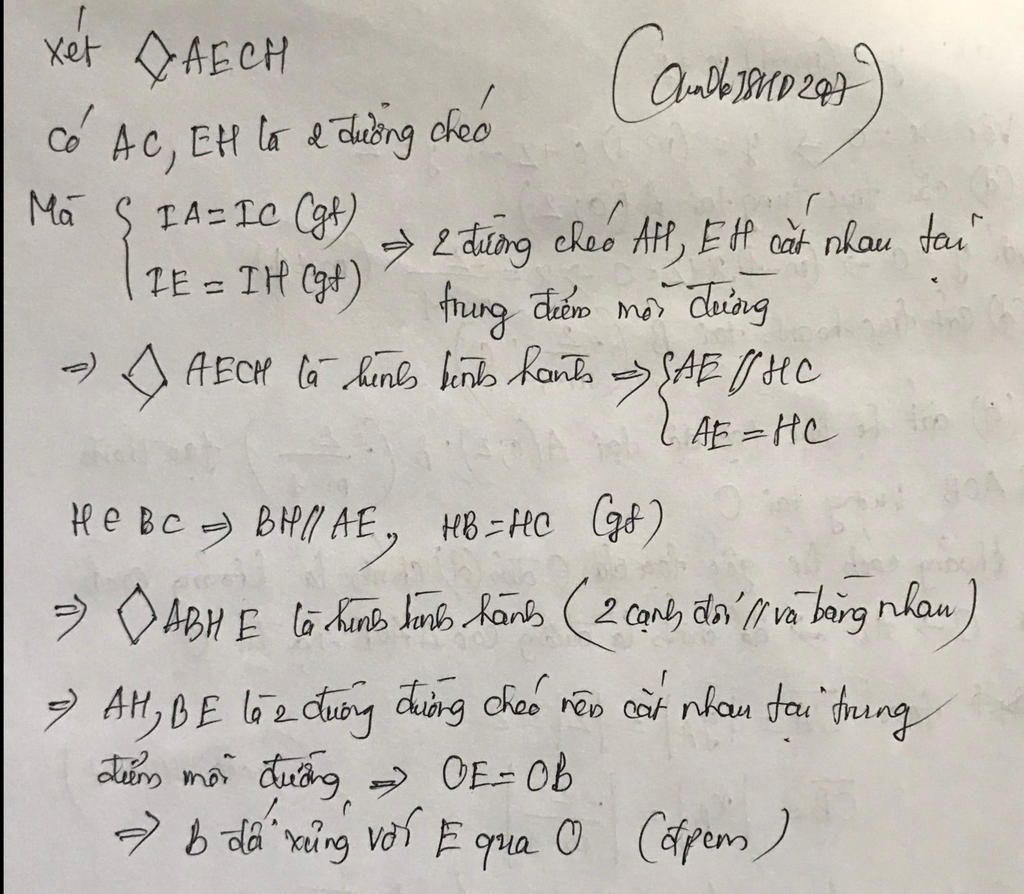 xét ◇AECH
có AC, EH là 2 đường chéo
Mà { IA = IC (gt)
IE = IH (gt) ⇒ 2 đường chéo AH, EH cắt nhau tại
trung điểm mỗi đường
⇒ ◇ AECH là hình bình hành ⇒ { AE // HC
AE = HC
H ∈ BC ⇒ BH // AE, HB = HC (gt)
⇒ ◇ABHE là hình bình hành (2 cạnh đối // và bằng nhau)
⇒ AH, BE là 2 đường đường chéo nên cắt nhau tại trung
điểm mỗi đường ⇒ OE = OB
⇒ B đối xứng với E qua O (đpcm)